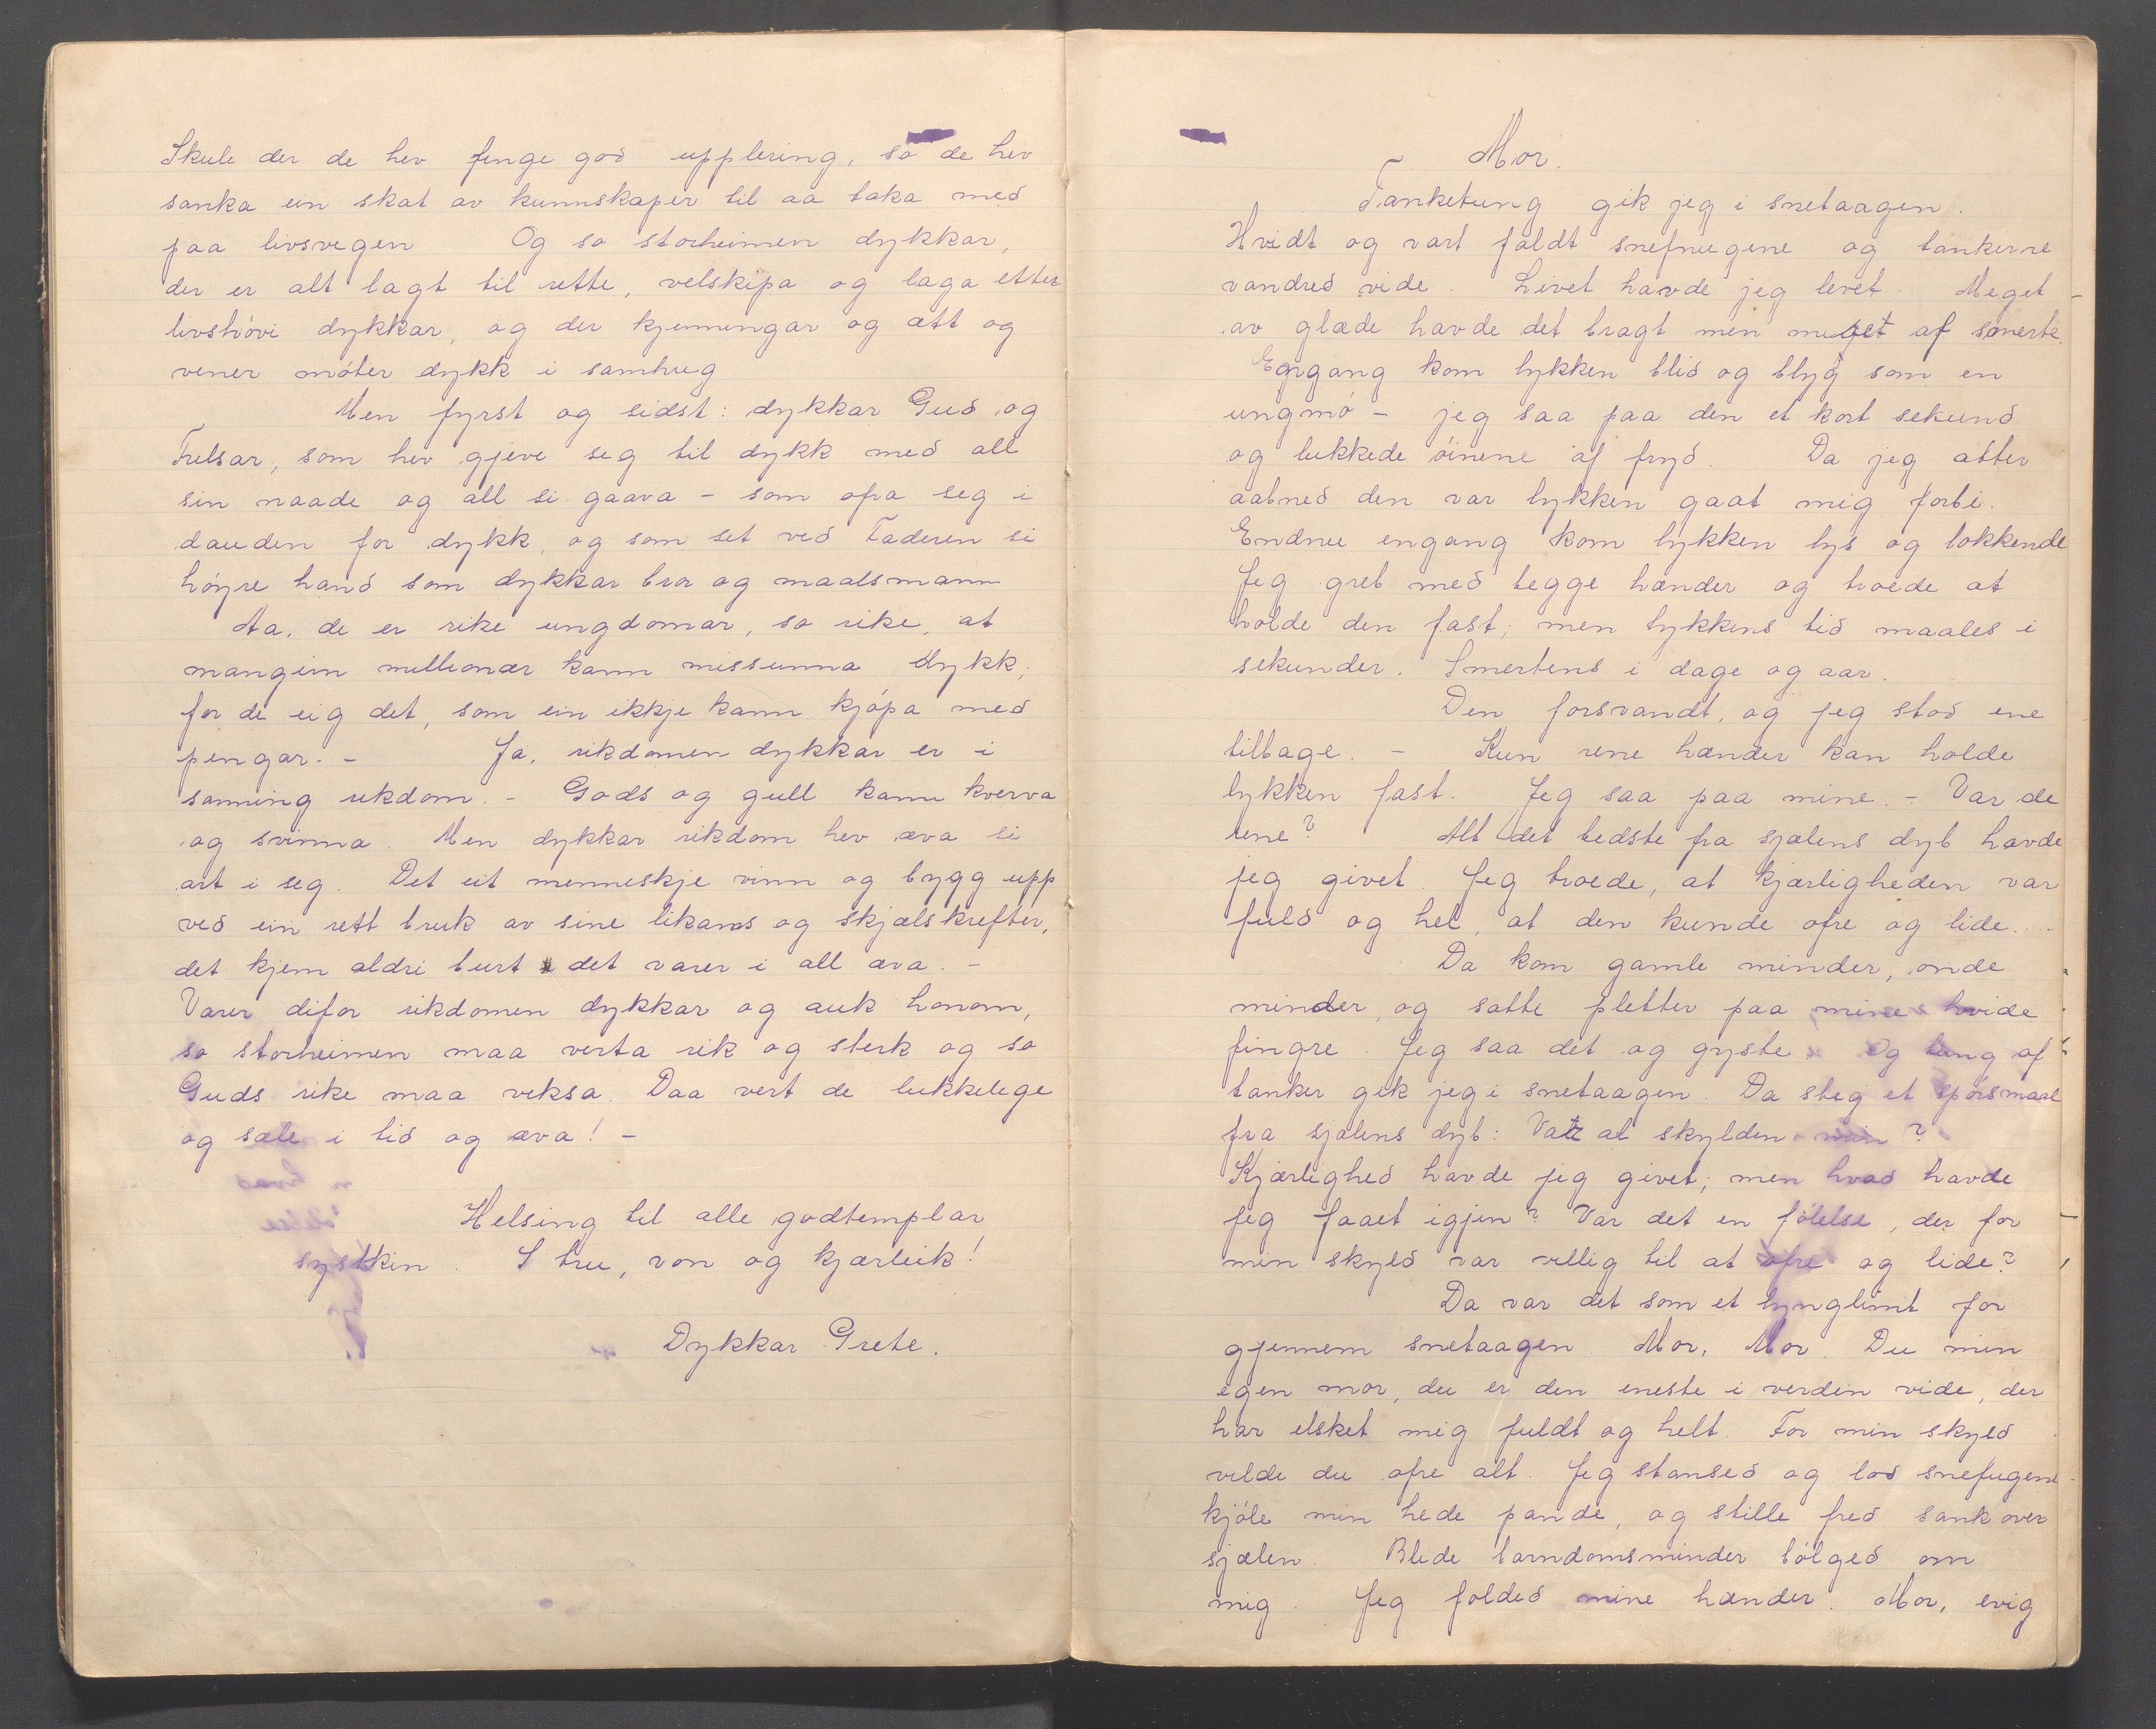 Skule der de hev fenge god upplering, so de hev
sanka ein skat av kunnskaper til aa taka med
paa livsvegen Og so storheimen dykkar,
der er alt lagt til rette, velskipa og laga etter
livshövi dykkar, og der kjenningar og ætt og
vener möter dykk i samhug
Men fyrst og sidst: dykkar Gud og
Frelsar, som hev gjeve seg til dykk med all
sin naade og all si gaava - som ofra seg i
dauden for dykk, og som set ved Faderen si
högre hand som dykkar bror og maalsmann
Aa, de er rike ungdomar, so rike, at
mangein millionær kann missunna dykk,
for de eig det, som ein ikkje kann kjöpa med
pengar. - Ja, rikdomen dykkar er i
sanning rikdom. - Gods og gull kann kverva
og svinna. Men dykkar rikdom hev æva si
art i seg. Det eit menneskje vinn og bygg upp
ved ein rett bruk av sine likams og skjælskrefter,
det kjem aldri burt det varer i all æva. -
Varer difor rikdomen dykkar og auk honom,
so storheimen maa verta rik og sterk og so
Guds rike maa veksa. Daa vert de lukkelege
og sæle i tid og æva! -
Helsing til alle godtemplar
systkin. I tru, von og kjærleik!
Dykkar Grete.
Mor.
Tanketung gik jeg i snetaagen.
Hvidt og vart faldt snefnugene og tankerne
vandred vide. Livet havde jeg levet. Meget
av glæde havde det bragt men meget af smerte.
Engang kom lykken blid og blyg som en
ungmö - jeg saa paa den et kort sekund
og lukkede öinene af fryd. Da jeg atter
aabned den var lykken gaat mig forbi.
Endnu engang kom lykken lys og lokkende
Jeg greb med begge hænder og troede at
holde den fast; men lykkens tid maales i
sekunder. Smertens i dage og aar.
Den forsvandt, og jeg stod ene
tilbage. - Kun rene hænder kan holde
lykken fast. Jeg saa paa mine. - Var de
rene? Alt det bedste fra sjælens dyb havde
jeg givet. Jeg troede, at kjærligheden var
fuld og hel, at den kunde ofre og lide.
Da kom gamle minder, onde
minder, og satte pletter paa mine hvide
fingre. Jeg saa det og gyste. Og tung af
tanker gik jeg i snetaagen. Da steg et spörsmaal
fra sjælens dyb: Var al skylden min?
Kjærlighed havde jeg givet; men hvad havde
jeg faaet igjen? Var det en fölelse, der for
min skyld var villig til at ofre og lide?
Da var det som et lynglimt for
gjennem snetaagen. Mor, Mor. Du min
egen mor, du er den eneste i verden vide, der
har elsket mig fuldt og helt. For min skyld
vilde du ofre alt. Jeg stansed og lod snefugene
kjöle min hede pande, og stille fred sank over
sjælen. Blide barndomsminder bölged om
mig. Jeg folded mine hænder. Mor, evig